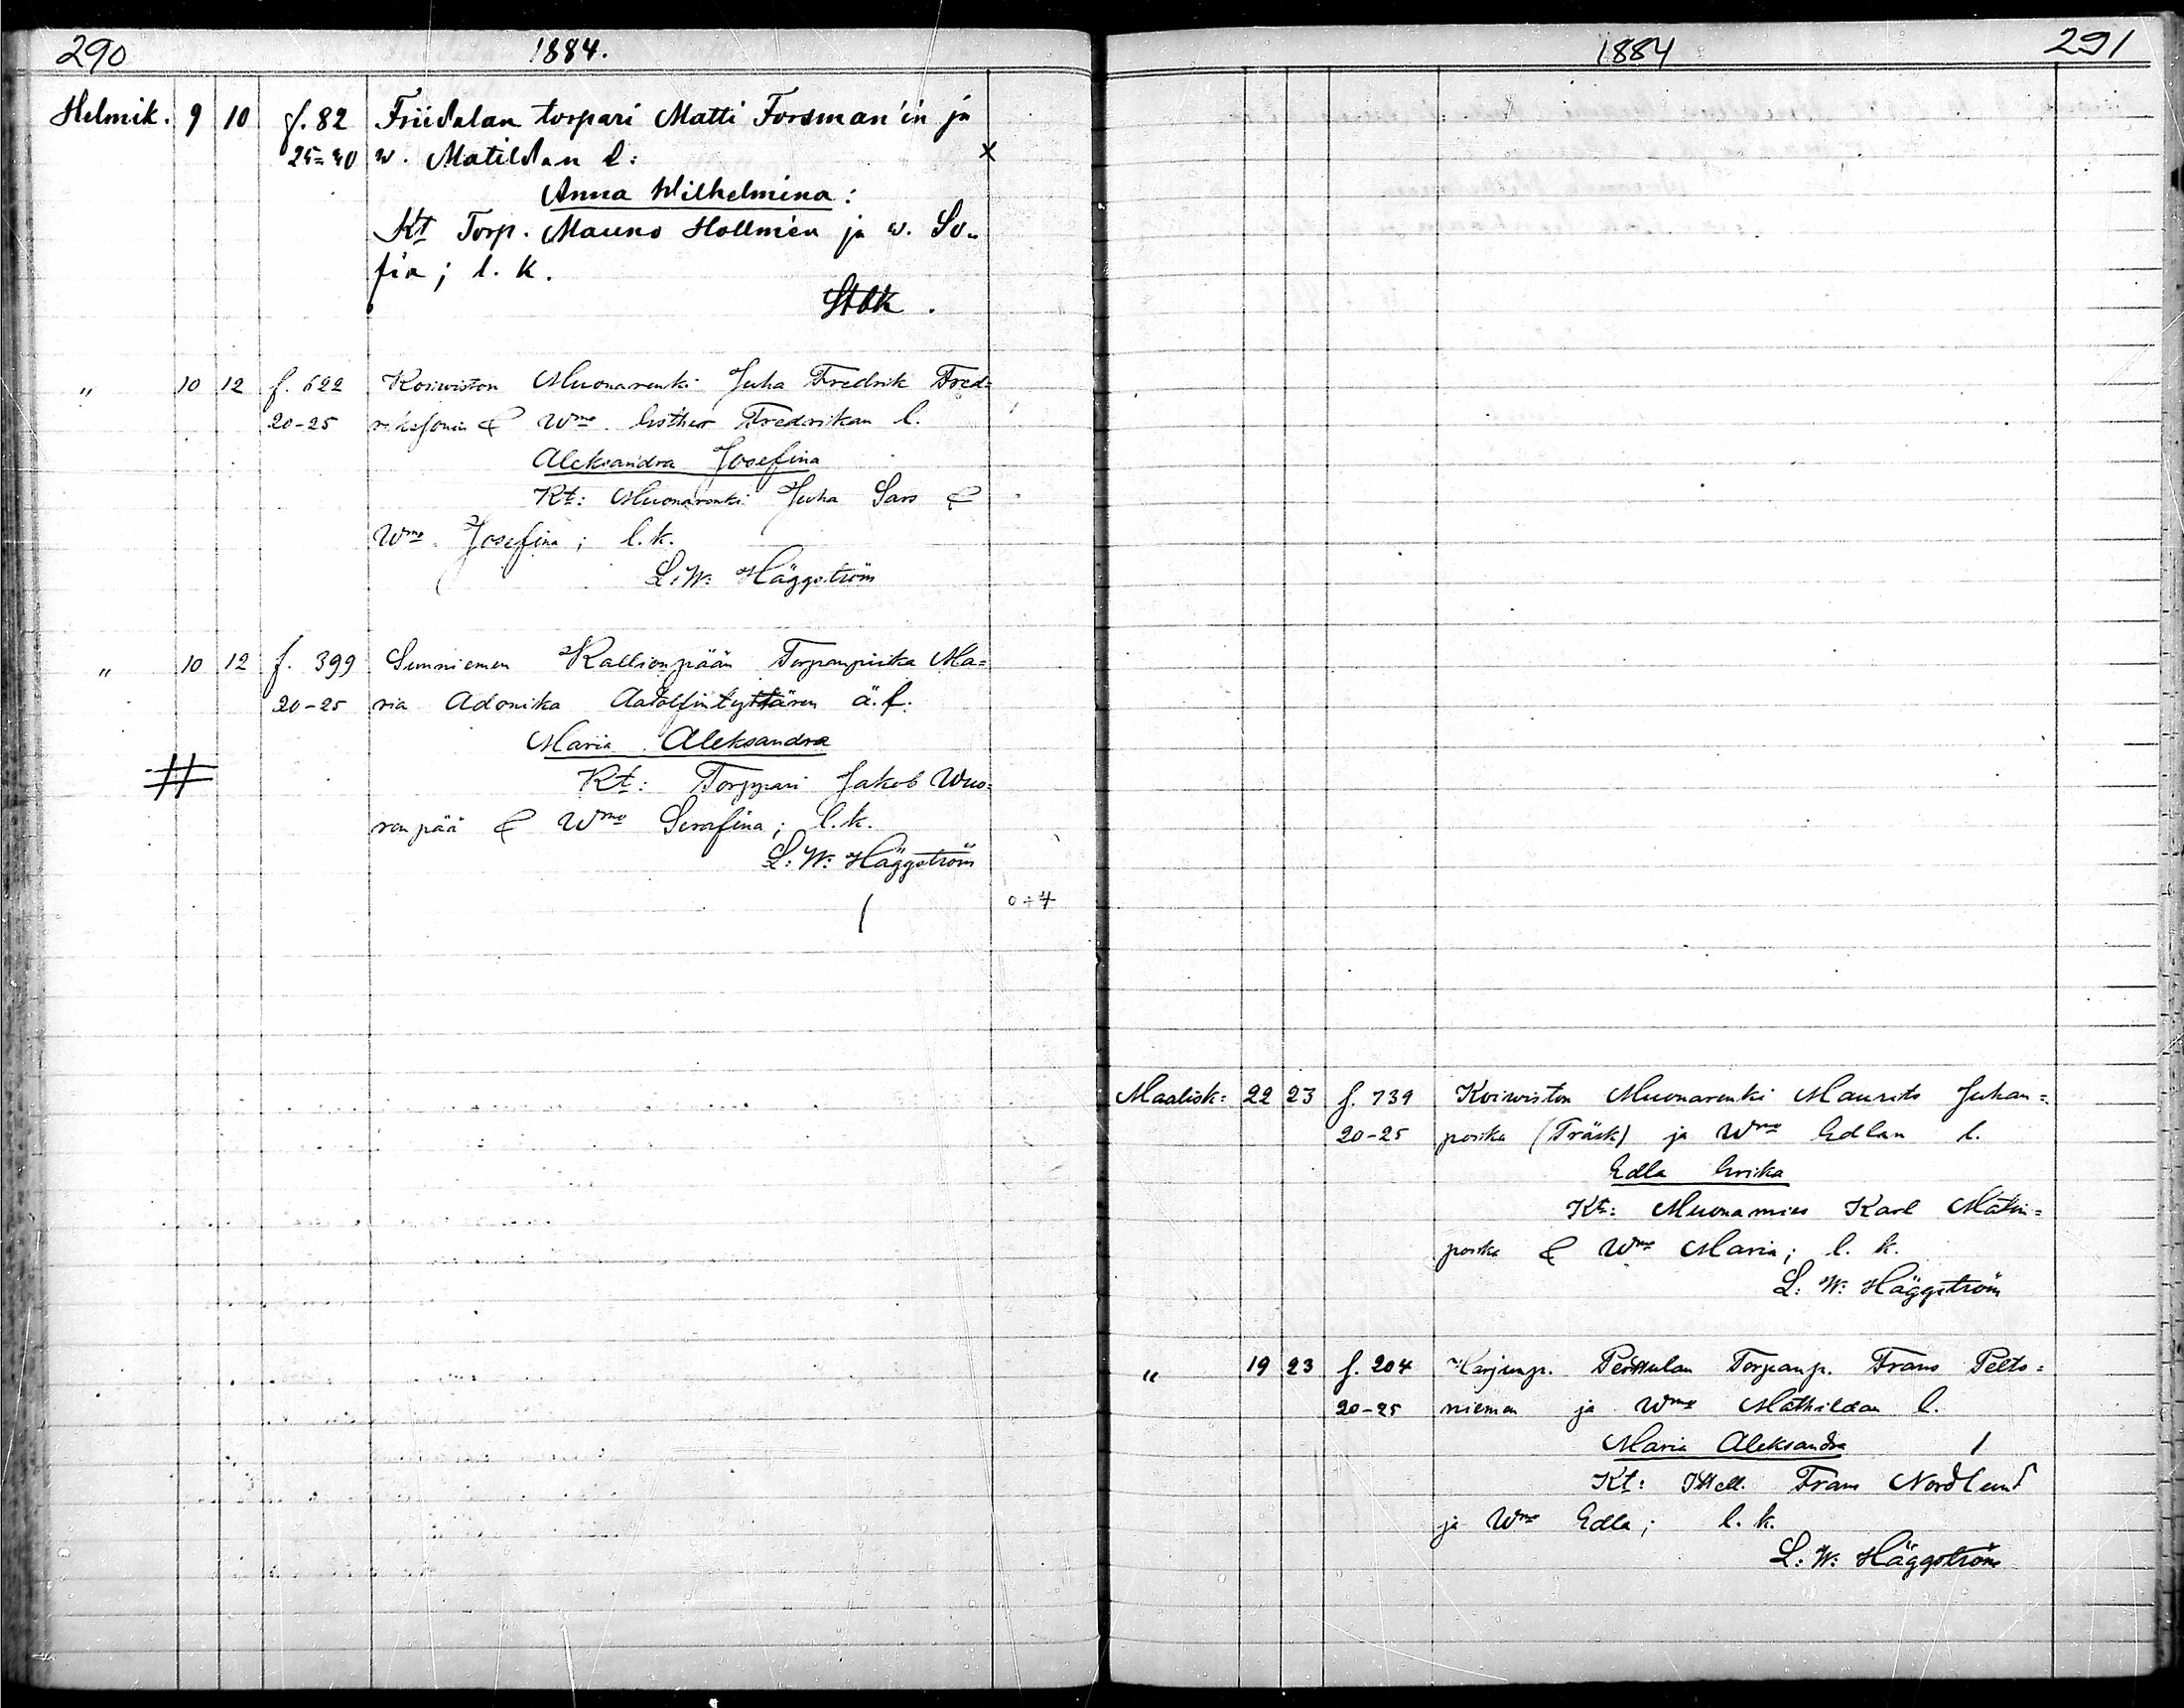 290 1884.
Helmik. 9 10 f. 82 Friidalan torpari Matti Forsman'in ja
25-40 w. Matildan l: x
Anna Wilhelmina:
Kt Torp. Mauno Hollmén ja w. So-
fia; l. k.
" 10 12 f. 622 Koiwiston Muonarenki Juha Fredrik Fred-
20-25 & Wmo Esther Fredrikan l.
Aleksandra Josefina
Kt: Muonarenki Juha Sars &
Wmo. Josefina; l. k.
L. W. Häggström
" 10 12 f. 399 Kallionpään Torpanpiika Ma=
20-25 ria Adonika Aadolfintyttären ä. l.
Maria Aleksandra
Kt: Torppari Jakob Wuo=
ronpää & Wmo Serafina; l. k.
L: W: Häggström
1884 291
Maalisk: 22 23 f. 739 Koiwiston Muonarenki Maurits Juhan=
20-25 poika (Träsk) ja Wmo Edlan l.
Edla Erika
Kt: Muonamies Karl Matin=
poika & Wmo Maria; l. k.
L: W: Häggström
" 19 23 f. 204 Harjunp. Torpanp. Frans Pelto=
20-25 niemen ja Wmo Mathildan l.
Maria Aleksandra 1
Kt: Itsell. Frans Nordlund
ja Wmo Edla; l. k.
L: W: Häggström